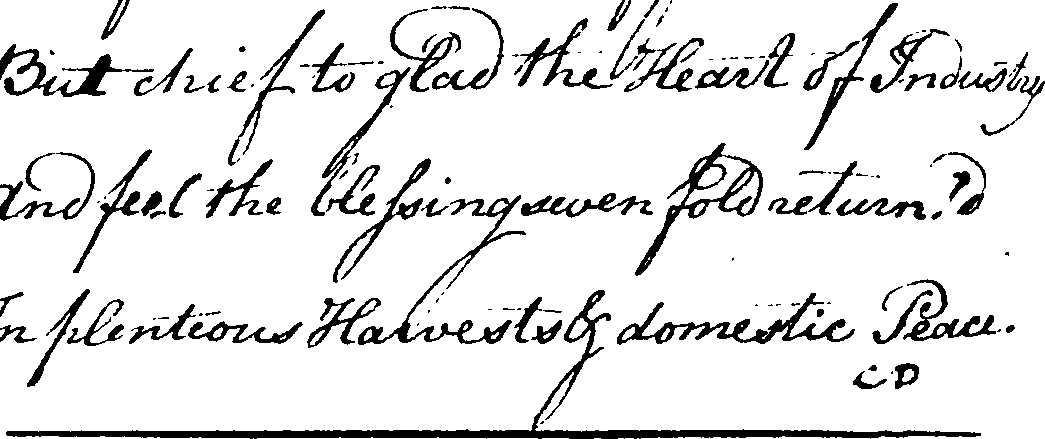 But chief to glad the Heart of Industry
And feel the blessing seven fold return'd
In plenteous Harvests & domestic Peace.
CD